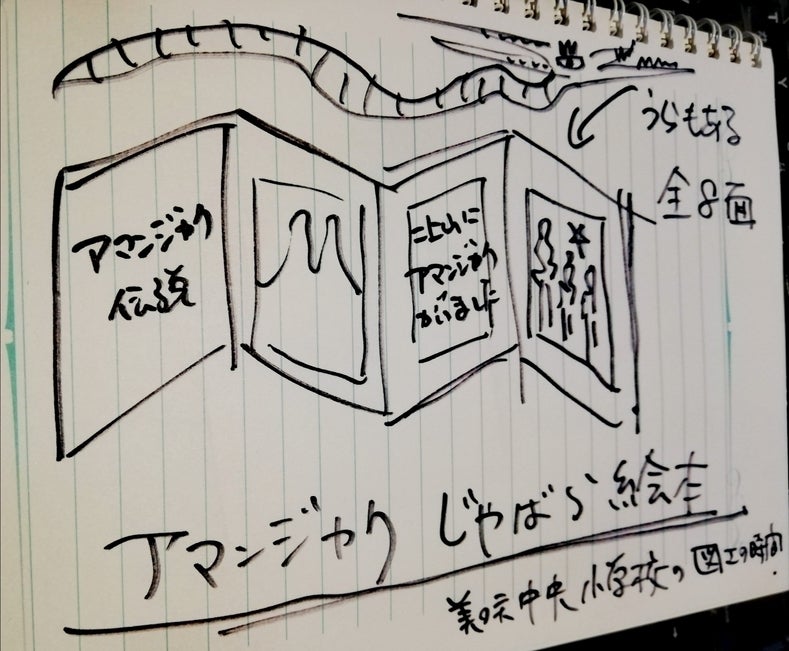 うらもある
全8面
アマンジャク
伝説
二上山に
アマンジャク
がいました
アマンジャク じゃばら絵本
美咲中央小学校の図工の時間